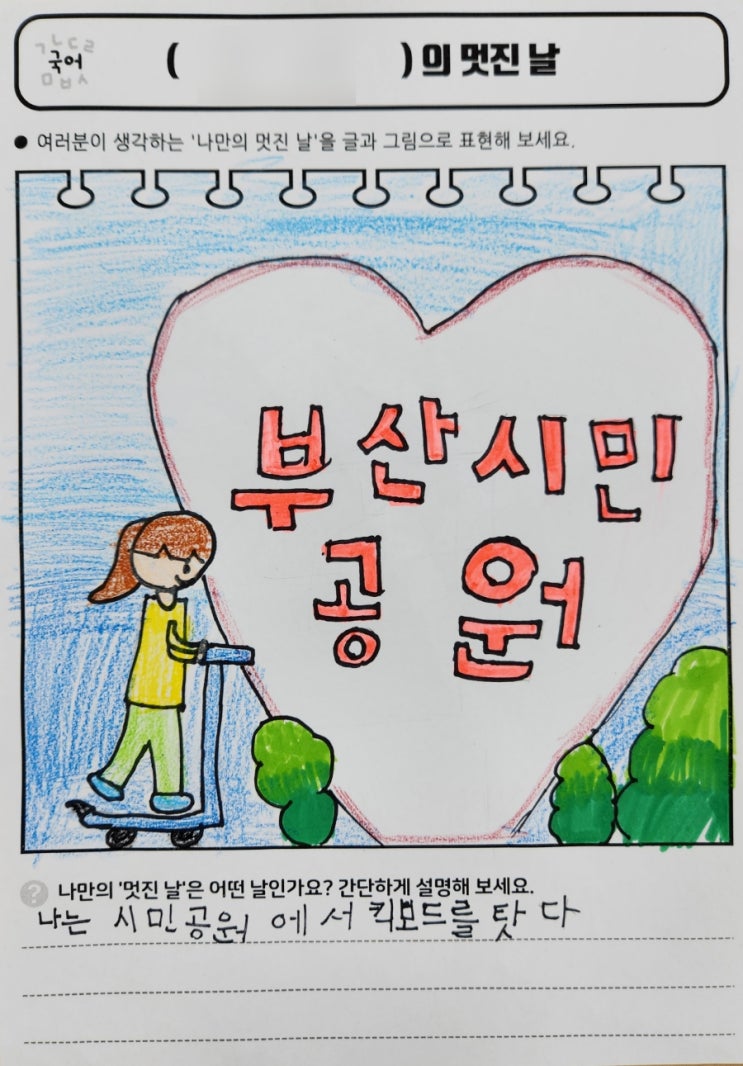 국어
( )의 멋진 날
● 여러분이 생각하는 '나만의 멋진 날'을 글과 그림으로 표현해 보세요.
부산시민
공원
? 나만의 '멋진 날'은 어떤 날인가요? 간단하게 설명해 보세요.
나는 시민공원 에서 킥보드를 탓다